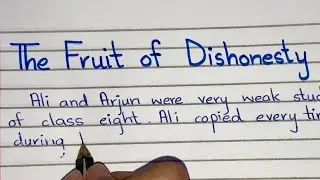 The Fruit of Dishonesty
Ali and Arjun were very weak
of class eight. Ali copied every
during